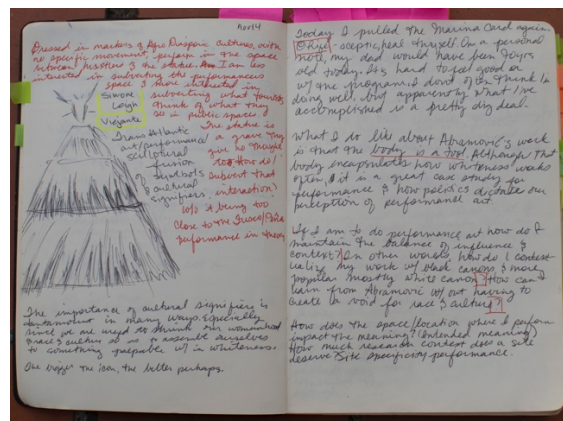 Dressed in markers of Afro Diasporic cultures, with
no specific movement, perform in the space
between hostless & the statue. I am less
interested in subverting the performances
space & more interested in
subverting what tourists
think of what they
see in public spaces
Simone
Leigh
Vigilante
Trans Atlantic
art/performance
sculptural
fusion
of symbols
& cultural
signifiers
The statue is
a grave they
give no thought
too. How do I
subvert that
interaction?
w/o it being too
close to the
performance in theory
The importance of cultural signifiers is
in many ways. Especially
since we are used to shrink our womanhood
race & culture so as to assemble ourselves
to something palpable w/in whiteness.
The bigger the icon, the better perhaps.
Today I pulled the Marina Card again
- sceptic, heal thyself. On a personal
note, my dad would have been
old today. It's hard to feel good or
w/ the program. I don't often think I'm
doing well, but apparently what I've
accomplished is a pretty big deal.
What I do like about Abramovic's work
is that the body is a tool. Although that
body encapsulates how whiteness works
often, it is a great case study for
performance & how politics dictate our
perception of performance art.
If I am to do performance art how do I
maintain the balance of influence &
context? In other words, how do I context-
ualize my work w/ black canons & more
popular mostly white canon? How can I
learn from Abramovic w/out having to
create a void for race & culture?
How does the space/location where I perform
impact the meaning? (intended meaning)
How much research context does a site
deserve? Site specificity performance.